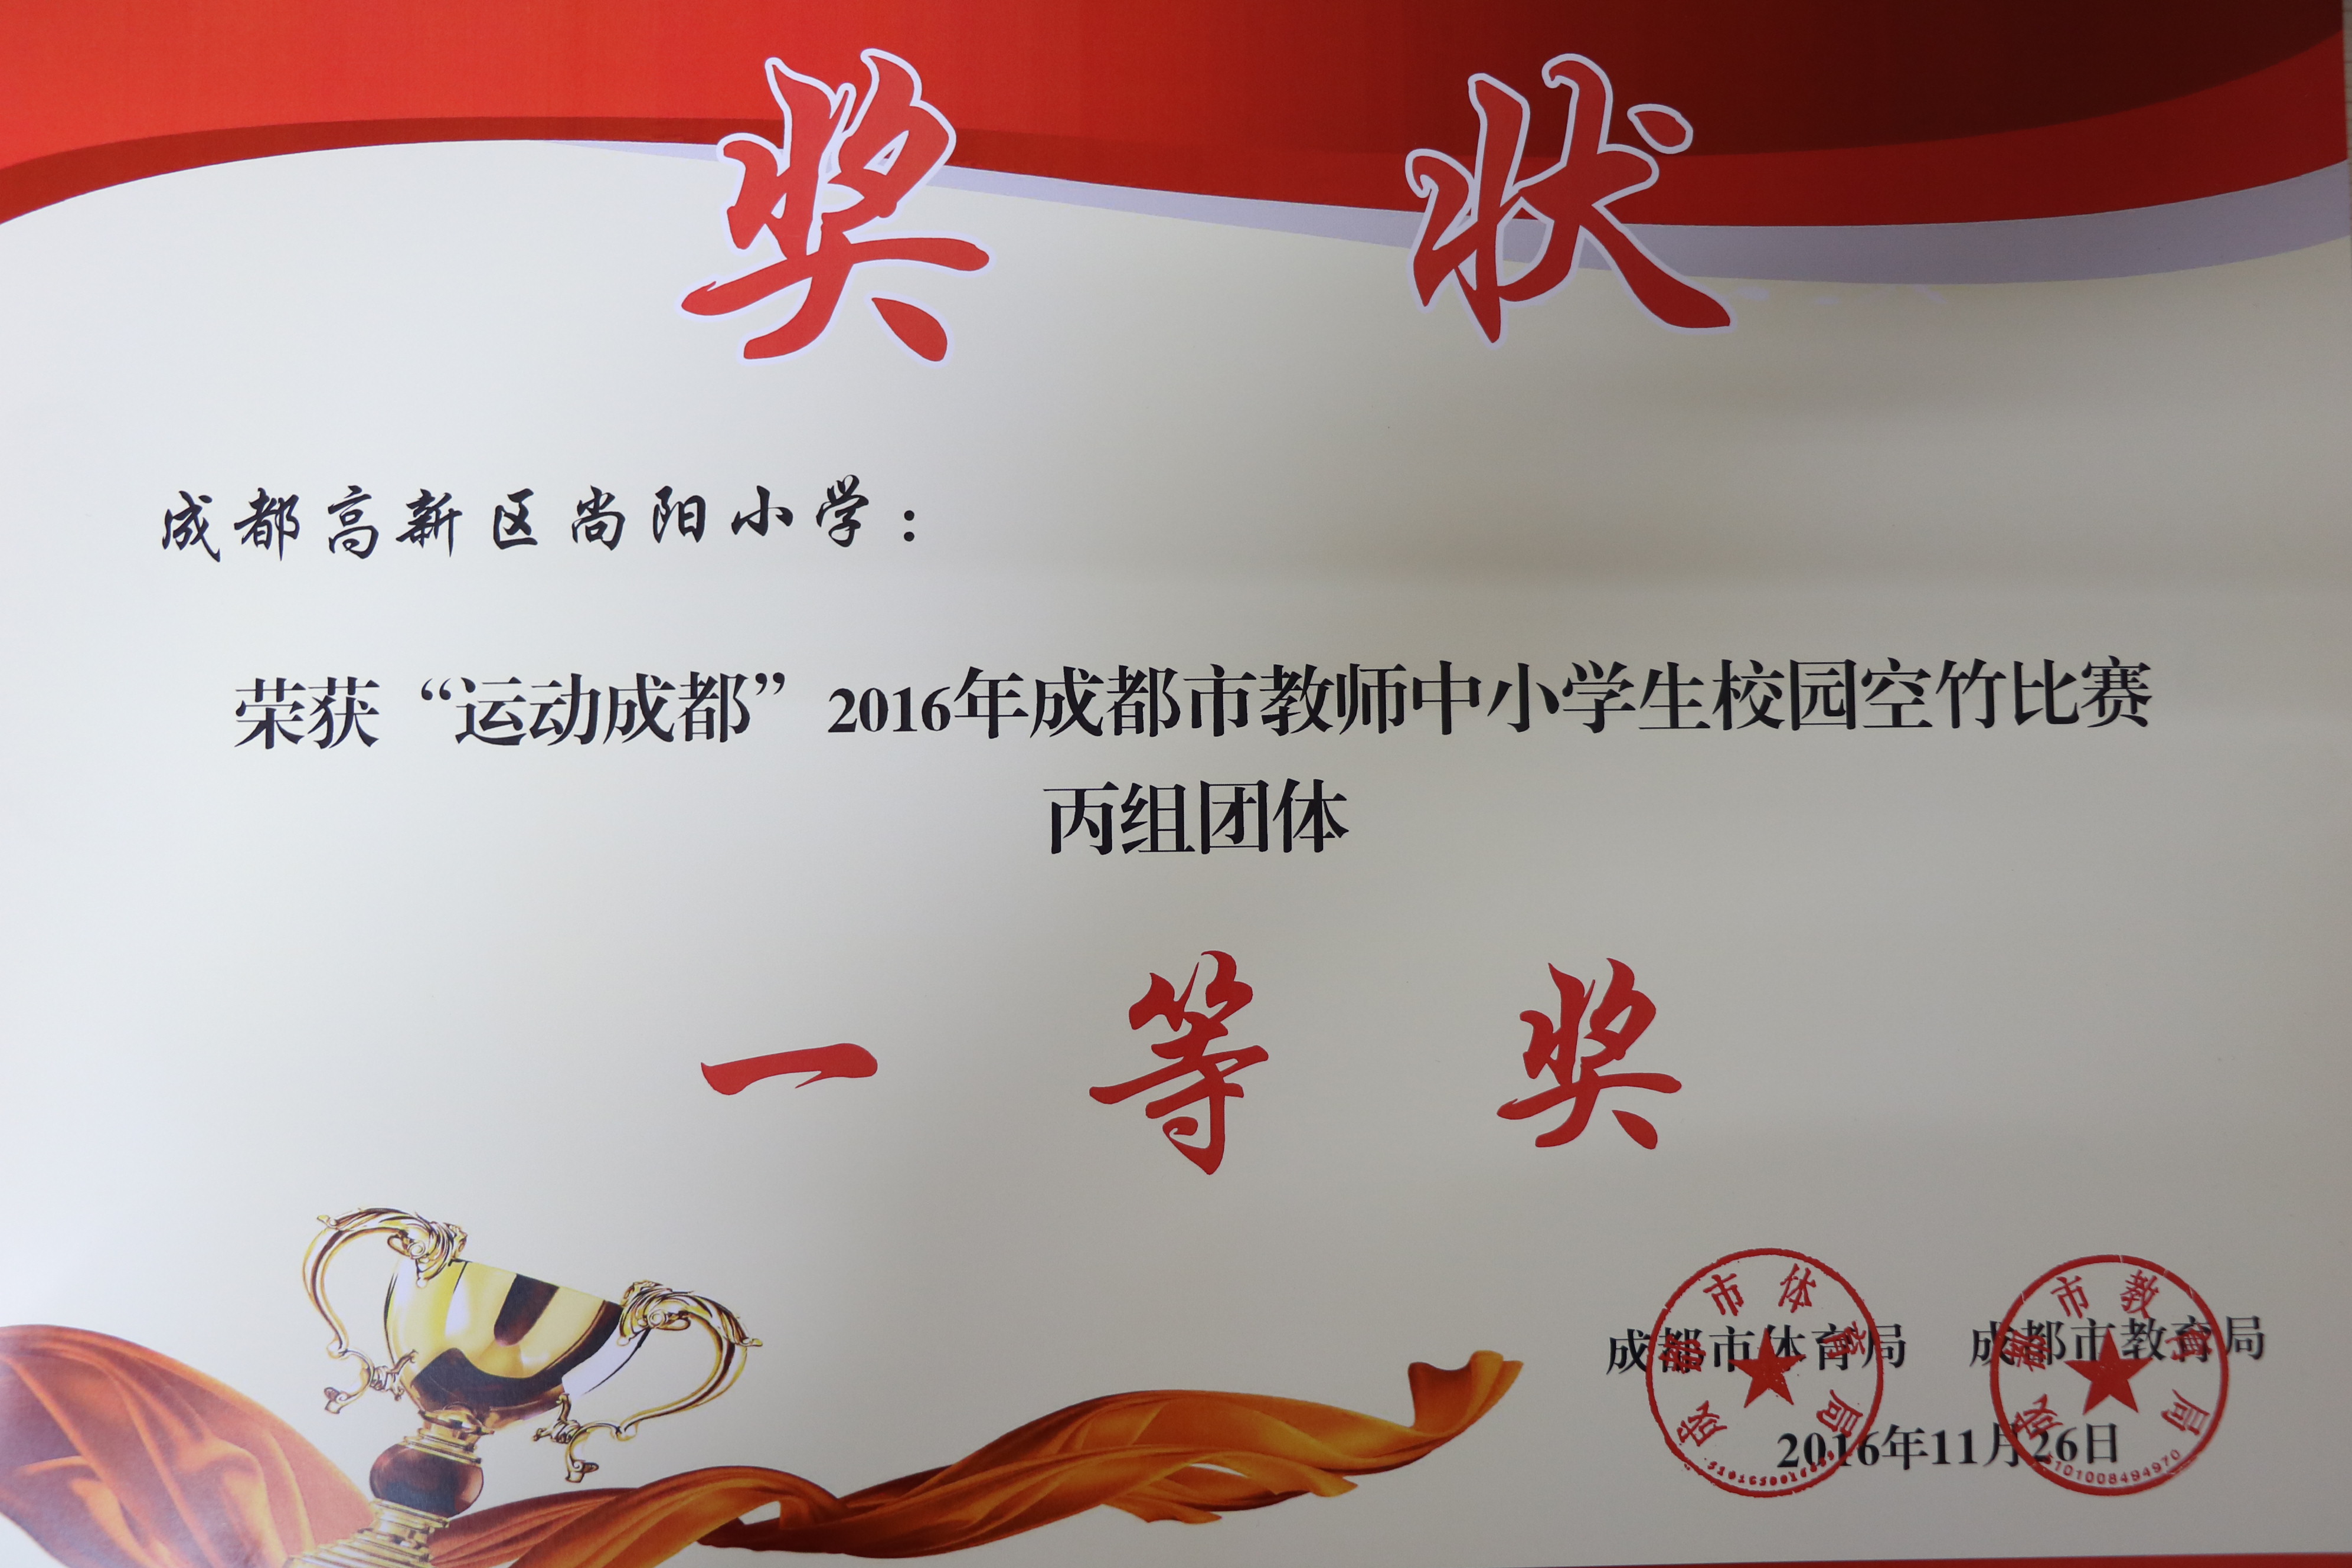 奖状
成都高新区尚阳小学：
荣获“运动成都”2016年成都市教师中小学生校园空竹比赛
丙组团体
一等奖
成都市体育局 成都市教育局
2016年11月26日
成都市体育局
成都市教育局
5101008494970